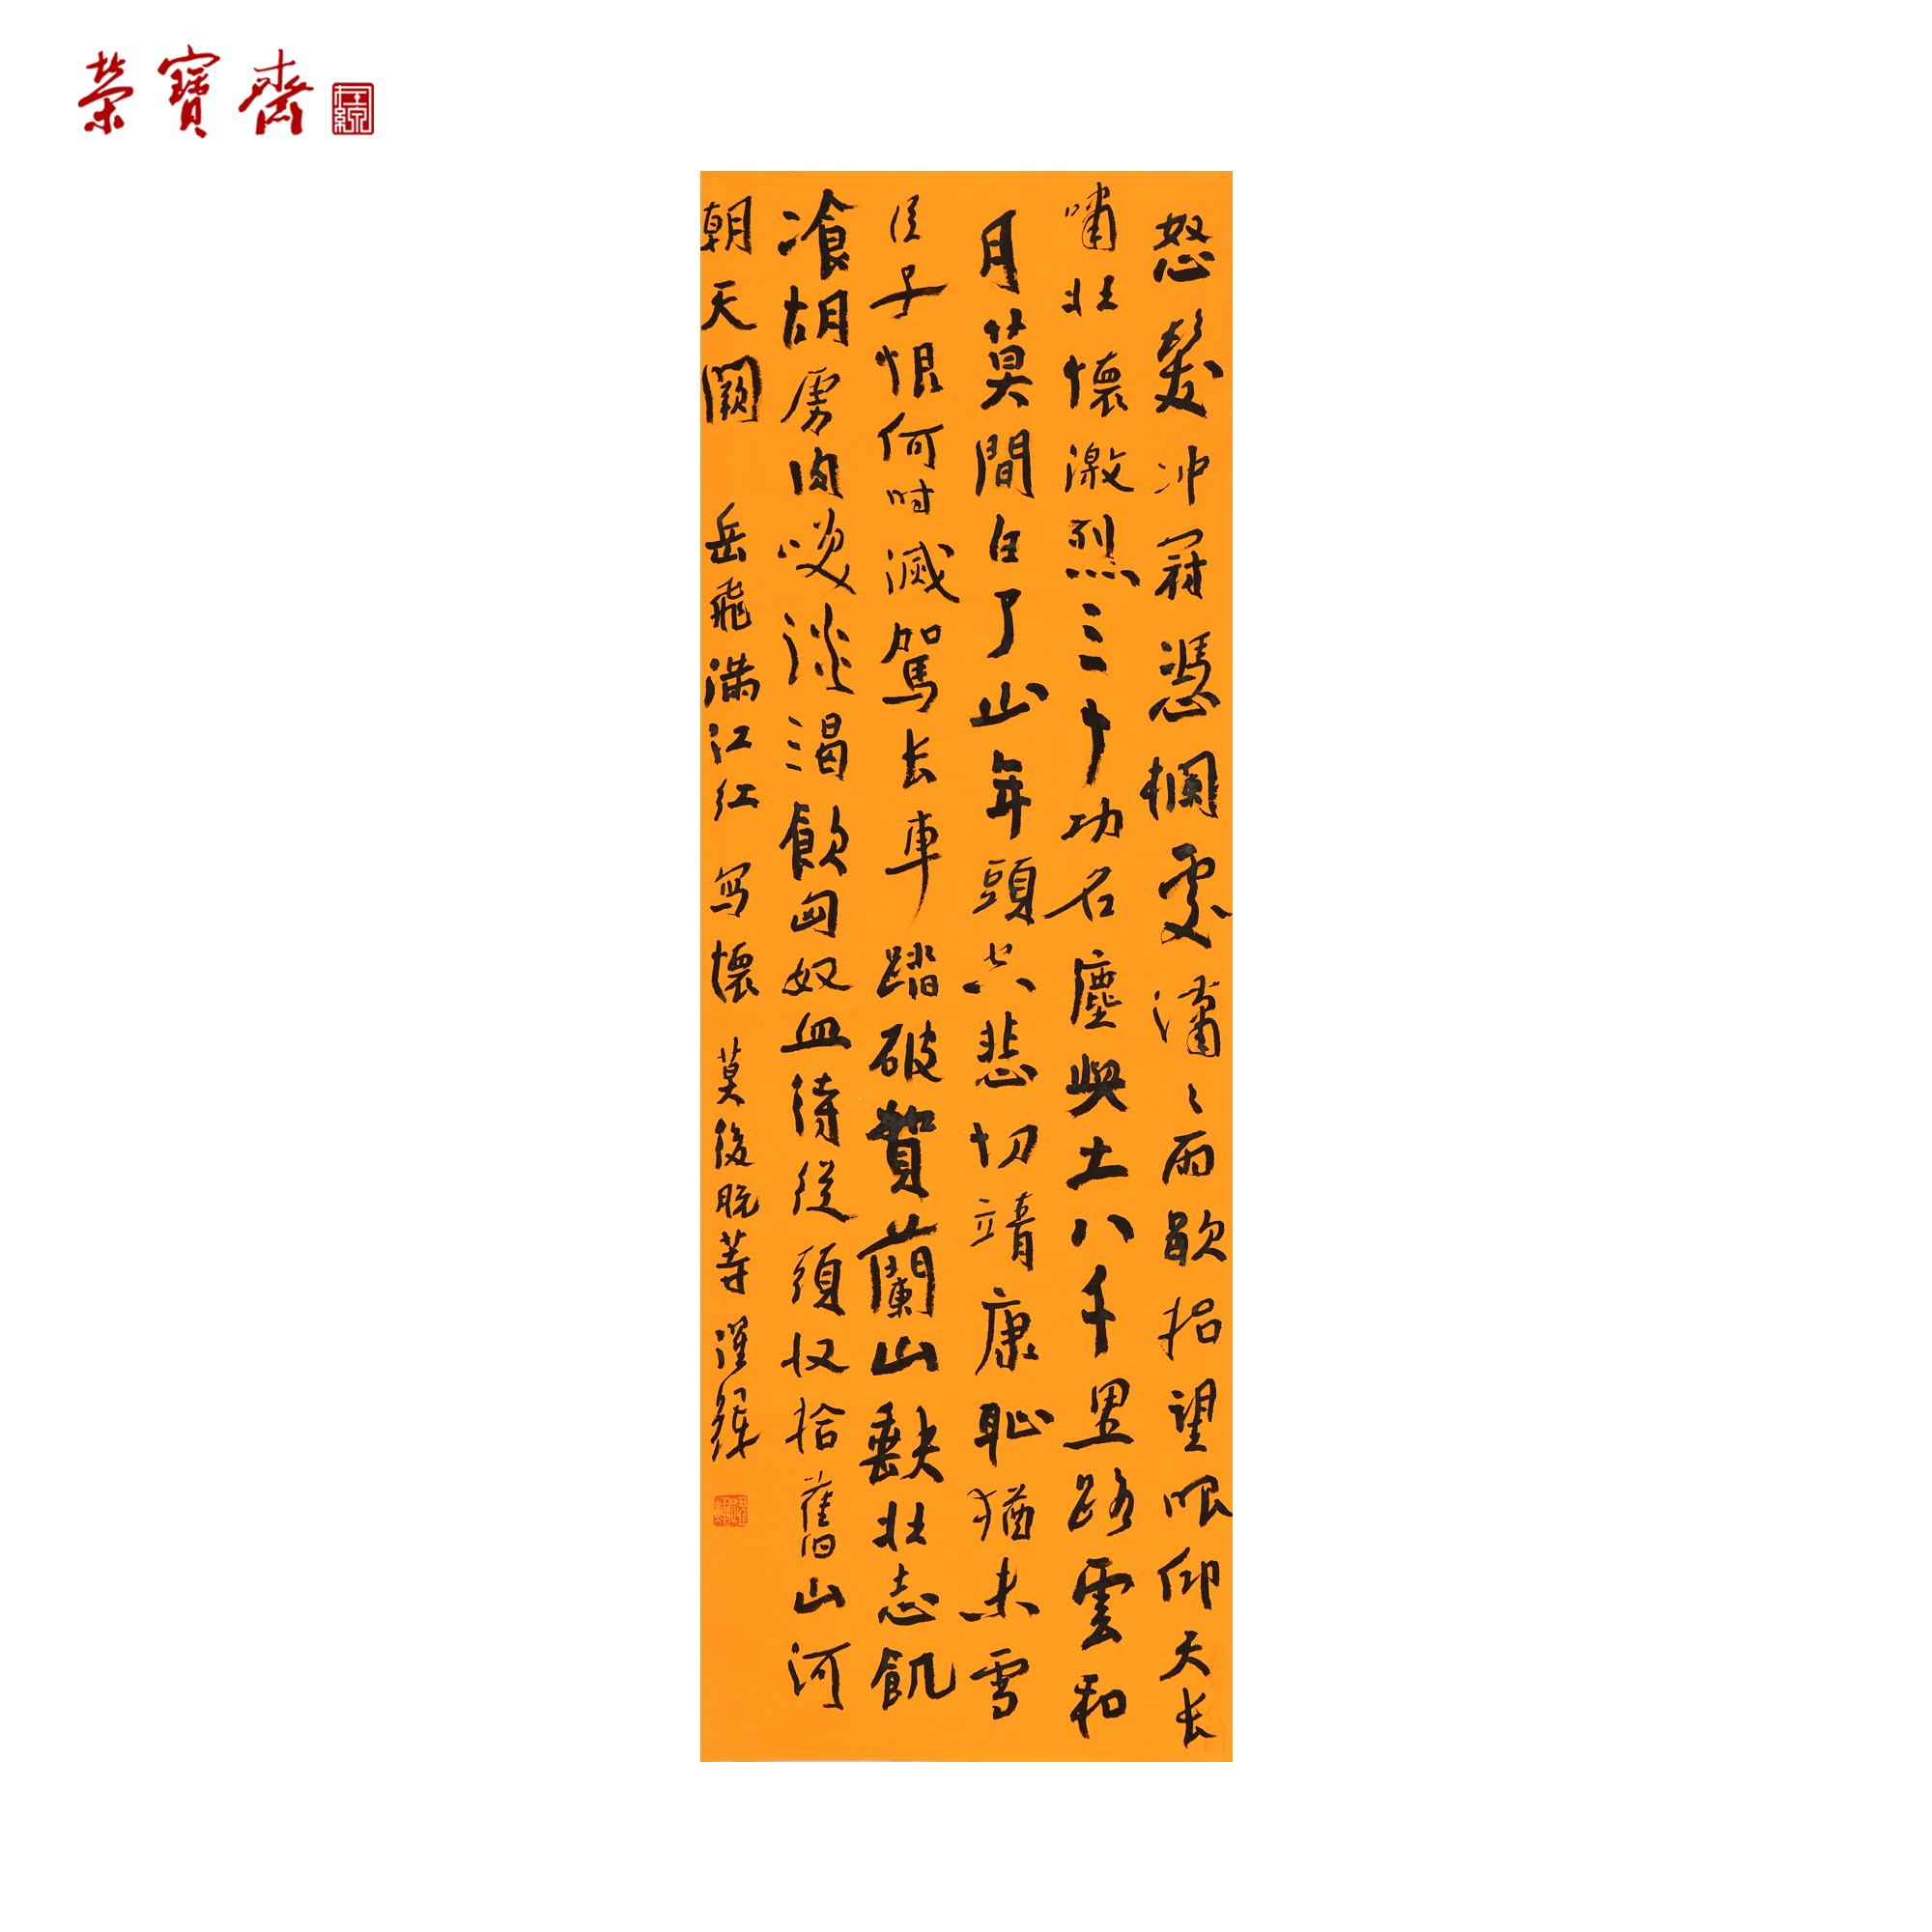 榮寶齋
怒髮冲冠憑欄處瀟〻雨歇抬望眼仰天长
嘯壯懷激烈三十功名塵與土八千里路雲和
月莫間白了少年頭空悲切靖康恥猶未雪
臣子恨何时滅駕长車踏破賀蘭山缺壯志飢
飡胡虜肉笑談渴飲匈奴血待從頭收拾舊山河
朝天闕 岳飛满江红 写懷